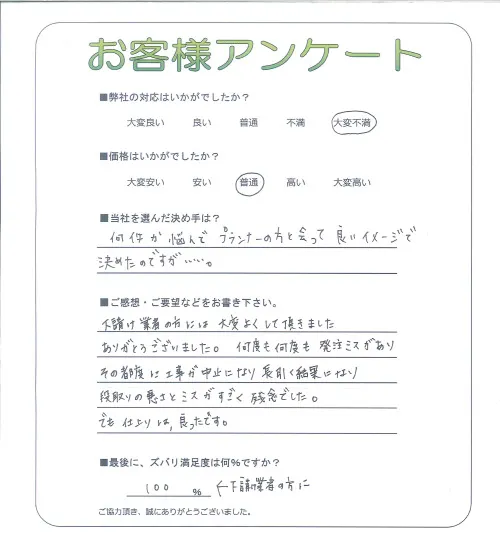 お客様アンケート
■弊社の対応はいかがでしたか？
大変良い 良い 普通 不満 大変不満
■価格はいかがでしたか？
大変安い 安い 普通 高い 大変高い
■当社を選んだ決め手は？
何件か悩んで プランナーの方と会って 良いイメージで
決めたのですが……。
■ご感想・ご要望などをお書き下さい。
下請け業者の方には 大変よくして頂きました
ありがとうございました。 何度も何度も 発注ミスがあり
その都度に工事が中止になり 長引く結果になり
段取りの悪さとミスがすごく 残念でした。
でも 仕上りは、良ったです。
■最後に、ズバリ満足度は何%ですか？
100 % ←下請け業者の方に
ご協力頂き、誠にありがとうございました。